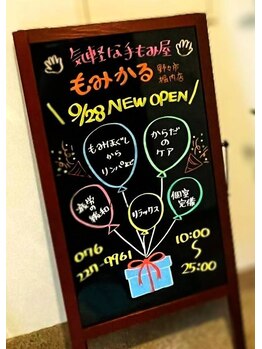 気軽な手もみ屋
もみかる
野々市
堀内店
9/28 NEW OPEN
もみほぐし
から
リンパまで
からだの
ケア
リラックス
個室
完備
076
227-9961
10:00
〜
25:00